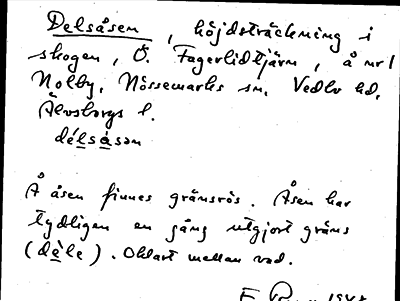 Delsåsen, höjdsträckning i
skogen, Ö. Fagerlidtjärn, å nr 1
Nolby, Nössemarks sn, Vedbo hd,
Älvsborgs l.
délsåsen
Å åsen finnes gränsrös. Åsen har
tydligen en gång utgjort gräns
(dèle). Oklart mellan vad.